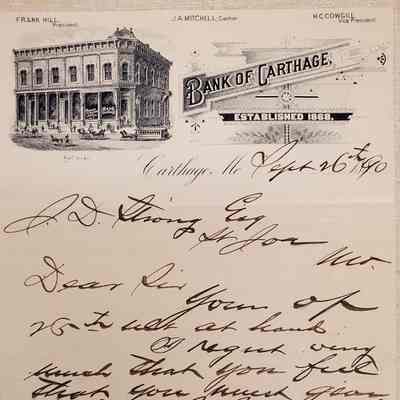 FRANK HILL, President.
J.A. MITCHELL, Cashier
H.C. COWGILL, Vice President.
BANK OF CARTHAGE,
ESTABLISHED 1868,
Carthage, Mo. Sept 26th 1890
J. D. Strong Esq
St Joe
Mo.
Dear Sir
Yours of
25th at hand.
I regret very
much that you feel
that you must give